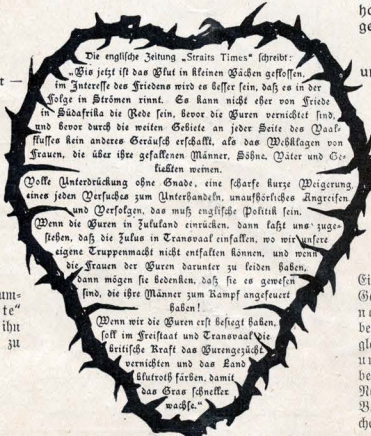 Die englische Zeitung „Straits Times“ schreibt:
„Bis jetzt ist das Blut in kleinen Bächen geflossen,
im Interesse des Friedens wird es besser sein, daß es in der
Folge in Strömen rinnt. Es kann nicht eher von Friede
in Südafrika die Rede sein, bevor die Buren vernichtet sind,
und bevor durch die weiten Gebiete an jeder Seite des Vaal-
flusses kein anderes Geräusch erschallt, als das Wehklagen von
Frauen, die über ihre gefallenen Männer, Söhne, Väter und Ge-
liebten weinen.
Volle Unterdrückung ohne Gnade, eine scharfe kurze Weigerung
eines jeden Versuches zum Unterhandeln, unaufhörliches Angreifen
und Verfolgen, das muß englische Politik sein.
Wenn die Buren in Zululand einrücken, dann laßt uns zuge-
stehen, daß die Zulus in Transvaal einfallen, wo wir unsere
eigene Truppenmacht nicht entfalten können, und wenn
die Frauen der Buren darunter zu leiden haben,
dann mögen sie bedenken, daß sie es gewesen
sind, die ihre Männer zum Kampf angefeuert
haben!
Wenn wir die Buren erst besiegt haben,
soll im Freistaat und Transvaal die
britische Kraft das Burengezücht
vernichten und das Land
blutroth färben, damit
das Gras schneller
wachse.“
um-
te“
ihn
zu